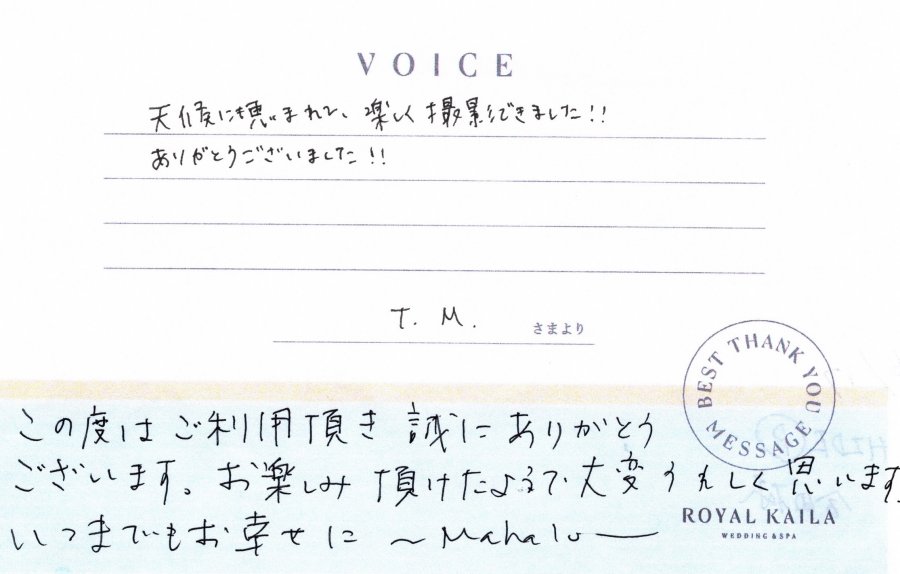 VOICE
天候にも恵まれて、楽しく撮影できました!!
ありがとうございました!!
T. M. さまより
BEST THANK YOU MESSAGE
この度はご利用頂き 誠にありがとう
ございます。お楽しみ頂けたようで大変うれしく思います。
いつまでもお幸せに 〜Mahalo―
ROYAL KAILA
WEDDING & SPA